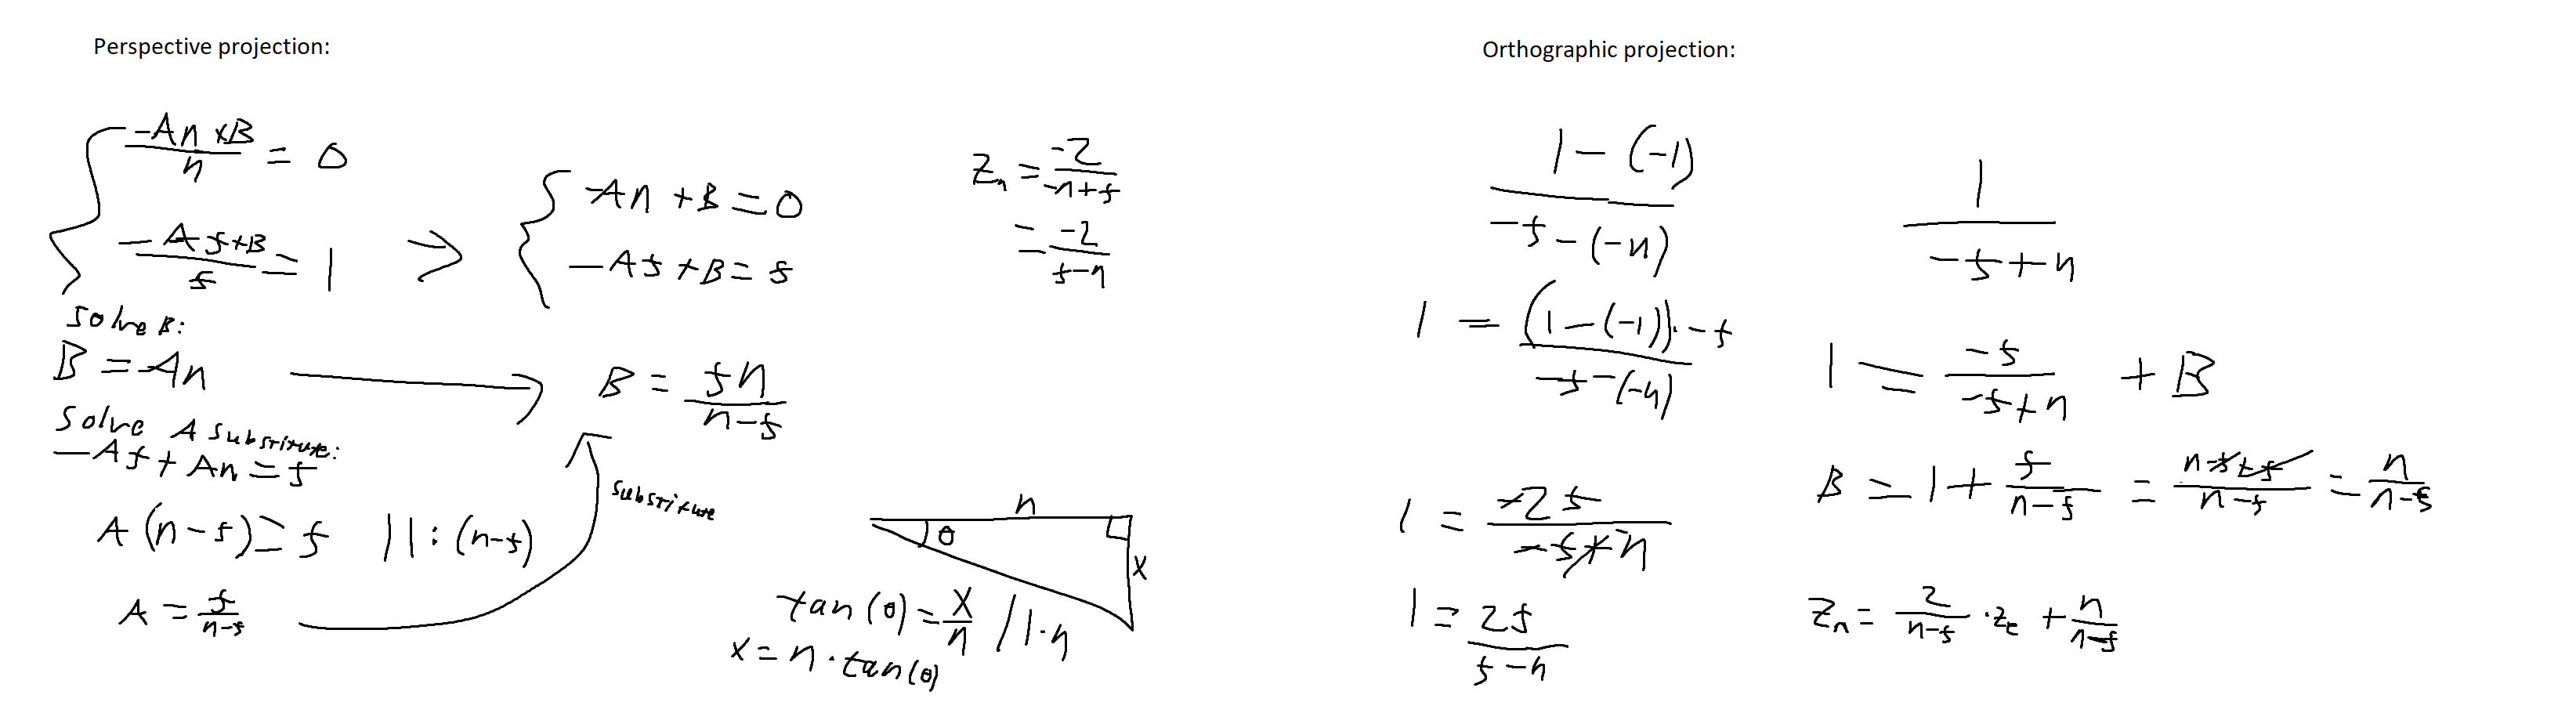 Perspective projection:
-An+B / n = 0
-Af+B / f = 1
⇒
-An + B = 0
-Af + B = f
Solve B:
B = An
B = fn / n-f
Solve A substitute:
-Af + An = f
A (n-f) = f || : (n-f)
A = f / n-f
substitute
Zn = -2 / -n+f
= -2 / f-n
n
θ
x
tan(θ) = x / n || · n
x = n · tan(θ)
Orthographic projection:
1 - (-1) / -f - (-n)
1 = (1 - (-1)) · -f / -f - (-n)
1 = -2f / -f + n
1 = 2f / f - n
1 / -f + n
1 = -f / -f + n + B
B = 1 + f / n-f = n-f+f / n-f = n / n-f
Zn = 2 / n-f · Ze + n / n-f